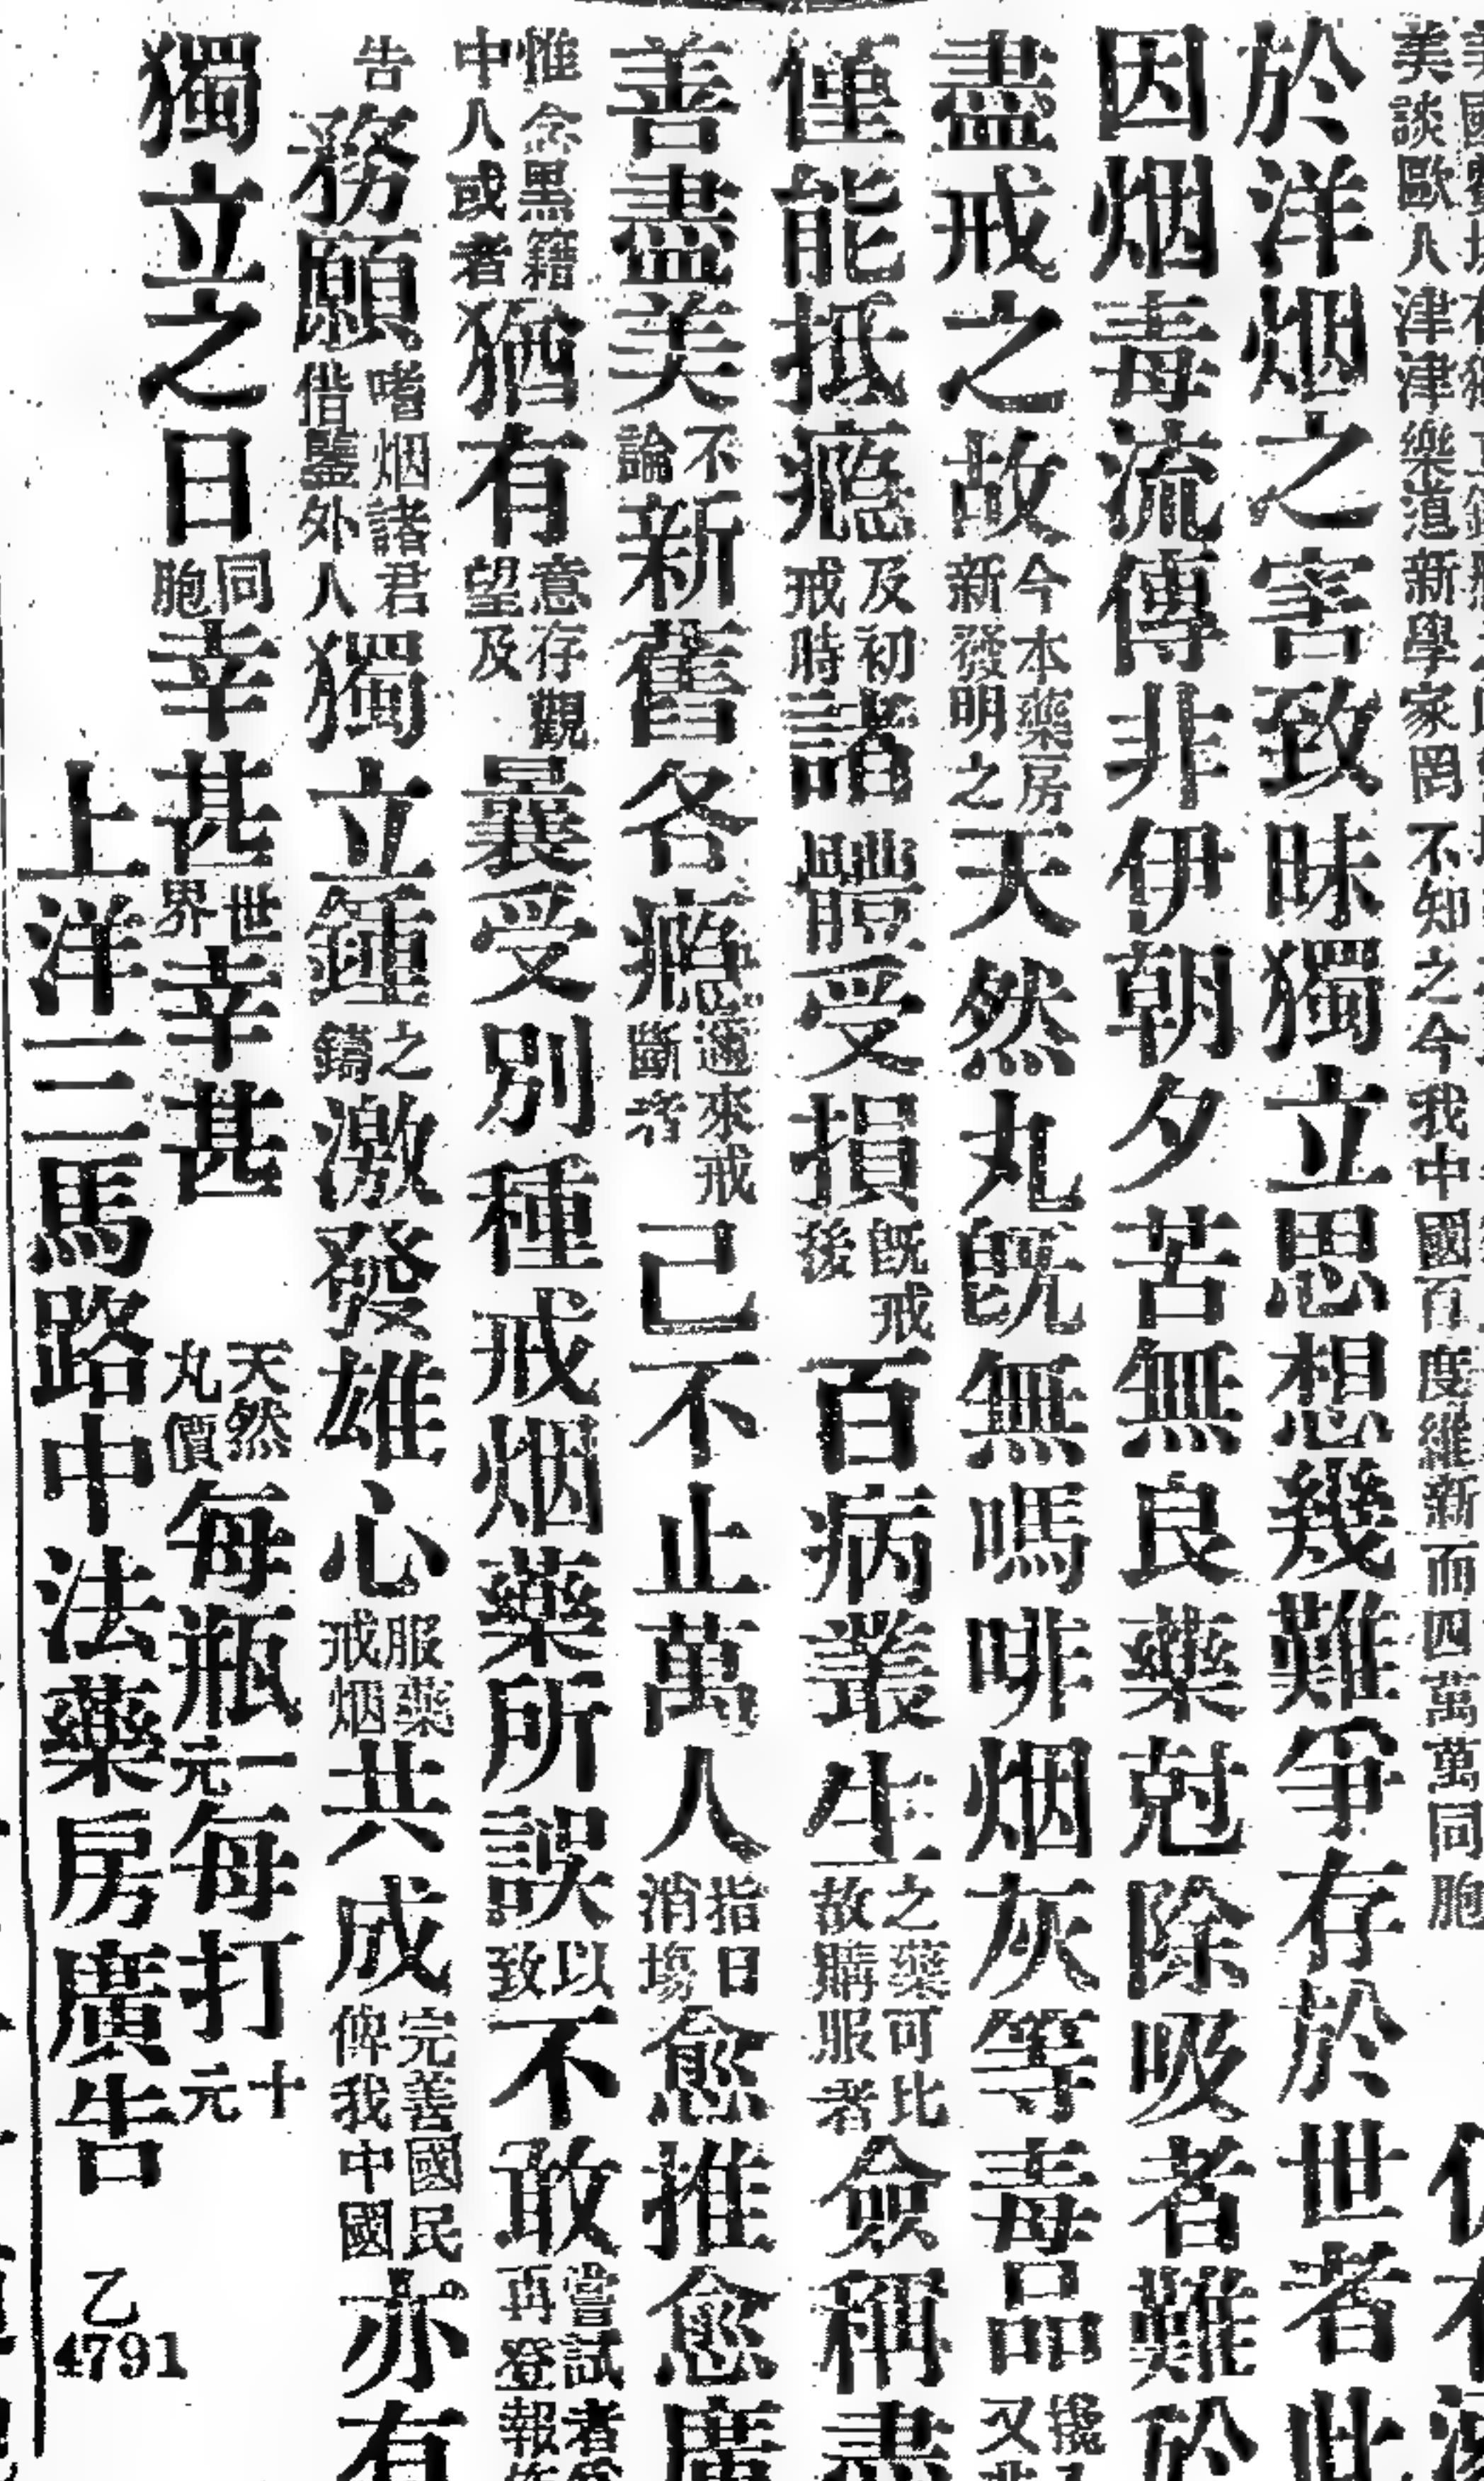 美談歐人津津樂道新學家罔不知之今我中國百度維新而四萬萬同胞
於洋烟之害致昧獨立思想幾難爭存於世者此
因烟毒流傳非伊朝夕苦無良藥尅除吸者難於
盡戒之故今本藥房新發明之天然丸既無嗎啡烟灰等毒品攙又
僅能抵癮及初戒時諸體受損既戒後百病叢生之藥可比故購服者僉稱盡
善盡美不論新舊各癮邇來戒斷者已不止萬人指日消塲愈推愈廣
惟念黑籍中人或者猶有意存觀望及曩受別種戒烟藥所誤以致不敢嘗試者再登報
告務願嗜烟諸君借鑒外人獨立鍾之鑄激發雄心服藥戒烟共成完善國民俾我中國亦有
獨立之日同胞幸甚世界幸甚 天然丸價每瓶一元每打十元
上洋三馬路中法藥房廣告 乙4791